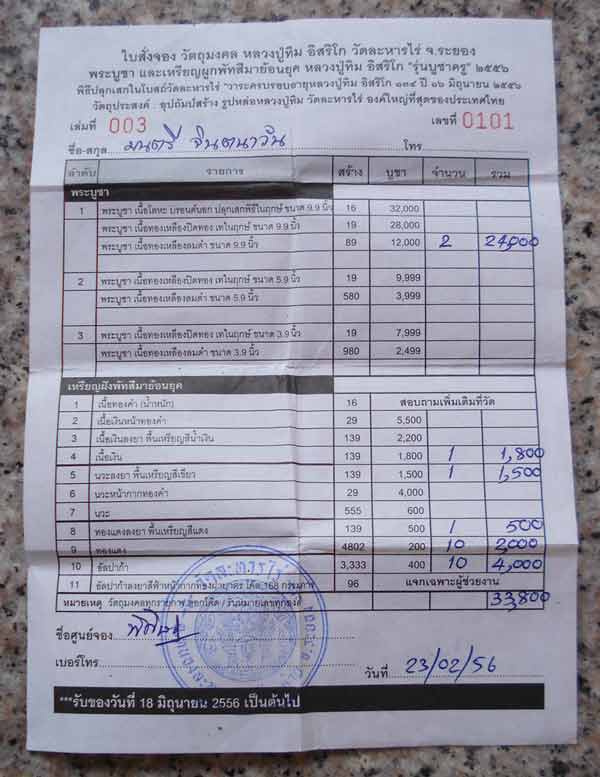 ใบสั่งจอง วัตถุมงคล หลวงปู่ทิม อิสริโก วัดละหารไร่ จ.ระยอง
พระบูชา และเหรียญผูกพัทสีมาย้อนยุค หลวงปู่ทิม อิสริโก "รุ่นบูชาครู" ๒๕๕๖
พิธีปลุกเสกในโบสถ์วัดละหารไร่ "วาระครบรอบอายุหลวงปู่ทิม อิสริโก ๑๓๔ ปี ๑๖ มิถุนายน ๒๕๕๖
วัตถุประสงค์ : อุปถัมป์สร้าง รูปหล่อหลวงปู่ทิม วัดละหารไร่ องค์ใหญ่ที่สุดของประเทศไทย
เล่มที่ 003 เลขที่ 0101
ชื่อ-สกุล มนตรี จินตนาวัน โทร
ลำดับ รายการ สร้าง บูชา จำนวน รวม
พระบูชา
1 พระบูชา เนื้อโลหะ บรอนด์นอก ปลุกเสกพิธีในฤกษ์ ขนาด 9.9 นิ้ว 16 32,000
พระบูชา เนื้อทองเหลืองปิดทอง เทในฤกษ์ ขนาด 9.9 นิ้ว 19 28,000
พระบูชา เนื้อทองเหลืองลมดำ ขนาด 9.9 นิ้ว 89 12,000 2 24,000
2 พระบูชา เนื้อทองเหลืองปิดทอง เทในฤกษ์ ขนาด 5.9 นิ้ว 19 9,999
พระบูชา เนื้อทองเหลืองลมดำ ขนาด 5.9 นิ้ว 580 3,999
3 พระบูชา เนื้อทองเหลืองปิดทอง เทในฤกษ์ ขนาด 3.9 นิ้ว 19 7,999
พระบูชา เนื้อทองเหลืองลมดำ ขนาด 3.9 นิ้ว 980 2,499
เหรียญฝังพัทสีมาย้อนยุค
1 เนื้อทองคำ (น้ำหนัก) 16 สอบถามเพิ่มเติมที่วัด
2 เนื้อเงินหน้าทองคำ 29 5,500
3 เนื้อเงินลงยา พื้นเหรียญสีน้ำเงิน 139 2,200
4 เนื้อเงิน 139 1,800 1 1,800
5 นวะลงยา พื้นเหรียญสีเขียว 139 1,500 1 1,500
6 นวะหน้ากากทองคำ 29 4,000
7 นวะ 555 600
8 ทองแดงลงยา พื้นเหรียญสีแดง 139 500 1 500
9 ทองแดง 4802 200 10 2,000
10 อัลปาก้า 3,333 400 10 4,000
11 อัลปาก้าลงยาสีฟ้าหน้ากาก โค๊ด 168 กรรมการ 96 แจกเฉพาะผู้ช่วยงาน
หมายเหตุ วัตถุมงคลทุกรายการ ตอกโค๊ด / รันหมายเลขทุกองค์ 33,800
ชื่อศูนย์จอง
เบอร์โทร วันที่ 23/02/56
***รับของวันที่ 18 มิถุนายน 2556 เป็นต้นไป